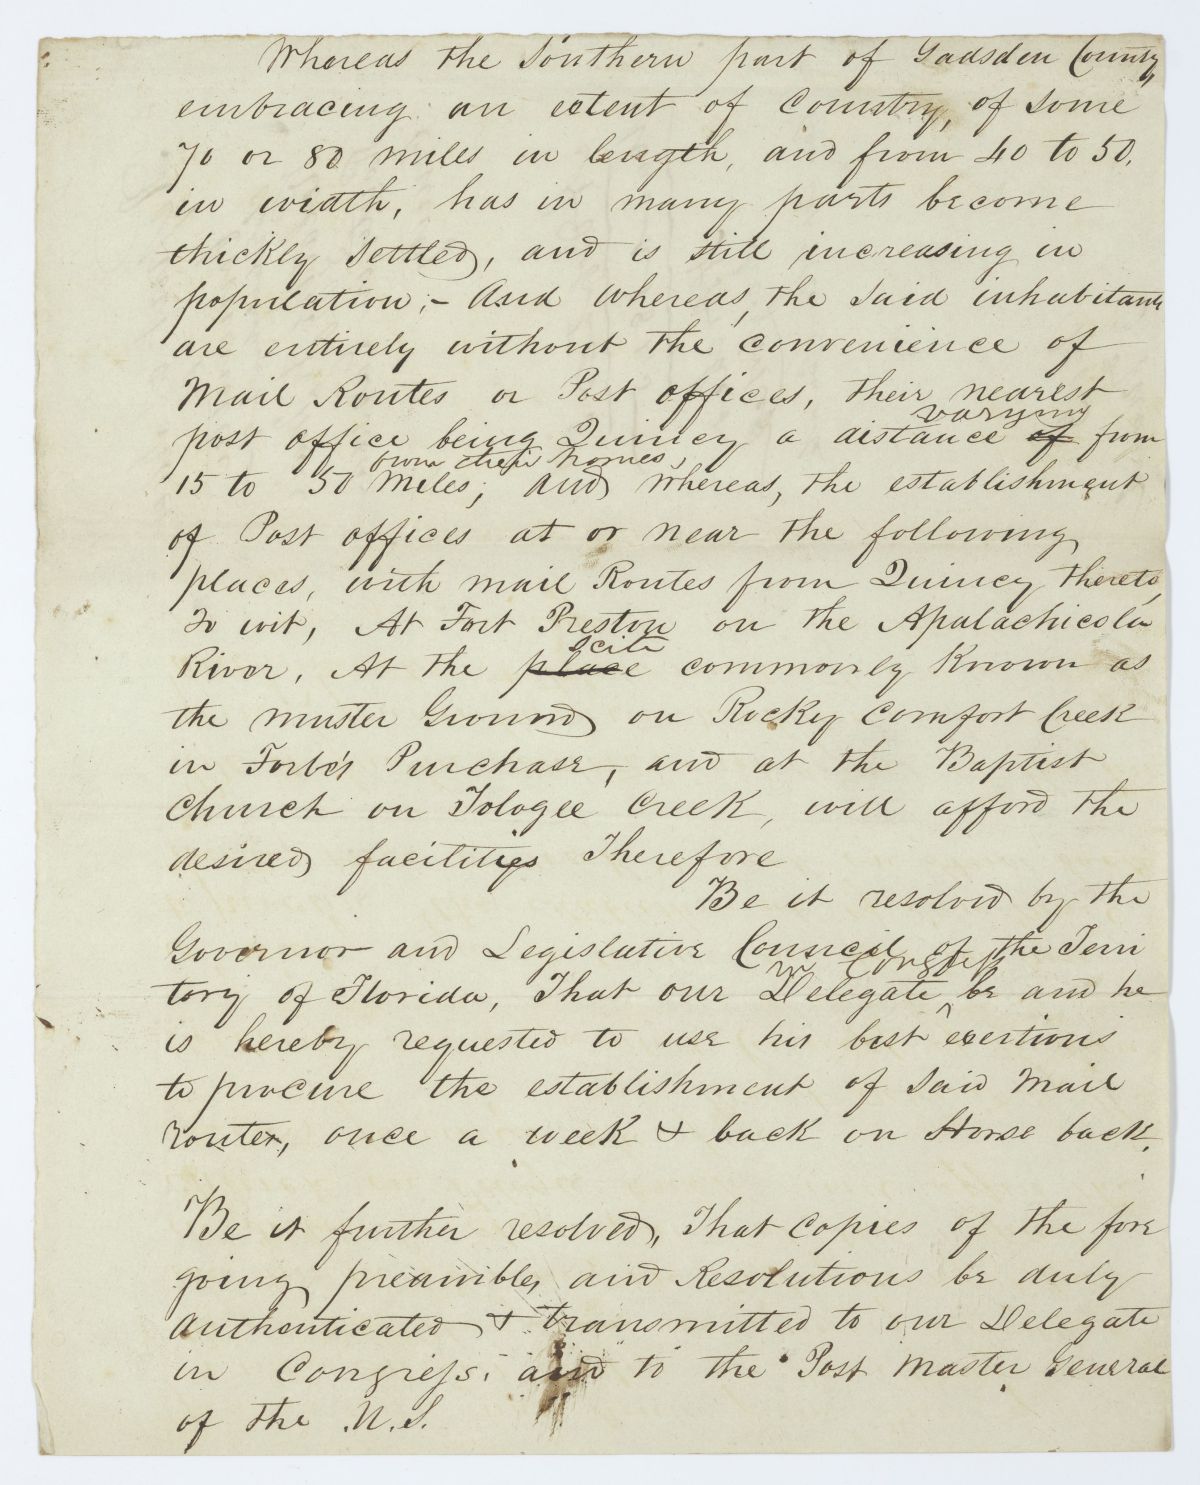 Whereas the Southern part of Gadsden County,
embracing an extent of Country, of some
70 or 80 miles in length, and from 40 to 50,
in width, has in many parts become
thickly settled, and is still increasing in
population; – And Whereas, the said inhabitants
are entirely without the convenience of
Mail Routes or Post offices, their nearest
varying
post office being Quincy a distance of from
from their homes,
15 to 50 Miles; and whereas, the establishment
of Post offices at or near the following
places, with mail Routes from Quincy thereto,
To wit, At Fort Preston on the Apalachicola
scite
River, At the place commonly Known as
the muster Ground on Rocky Comfort Creek
in Forbe's Purchase, and at the Baptist
Church on Tologee Creek, will afford the
desired facilities Therefore
Be it resolved by the
Governor and Legislative Council of the Terri
in Congress
tory of Florida, That our Delegate ^ be and he
is hereby requested to use his best exertions
to procure the establishment of said Mail
routes, once a week & back on Horse back.
Be it further resolved, That copies of the fore
going preamble, and Resolutions be duly
authenticated & transmitted to our Delegate
in Congress. and to the Post Master General
of the U.S.